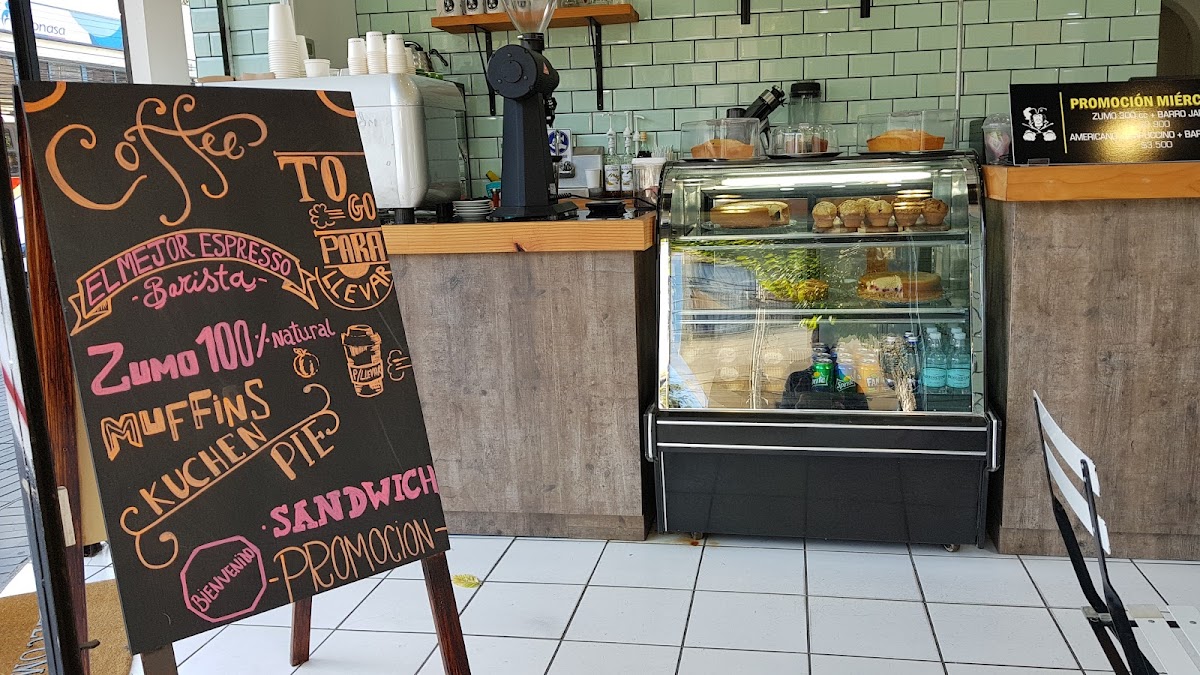 Coffee
TO
GO
PARA
LLEVAR
EL MEJOR ESPRESSO
-Barista-
ZUMO 100% Natural
P/LLEVAR
MUFFINS
KUCHEN
PIE
SANDWICH
-PROMOCION-
BIENVENIDO
PROMOCIÓN MIÉRC
ZUMO 300 cc + BARRO JA
AMERICANO
+ BAR
$3.500